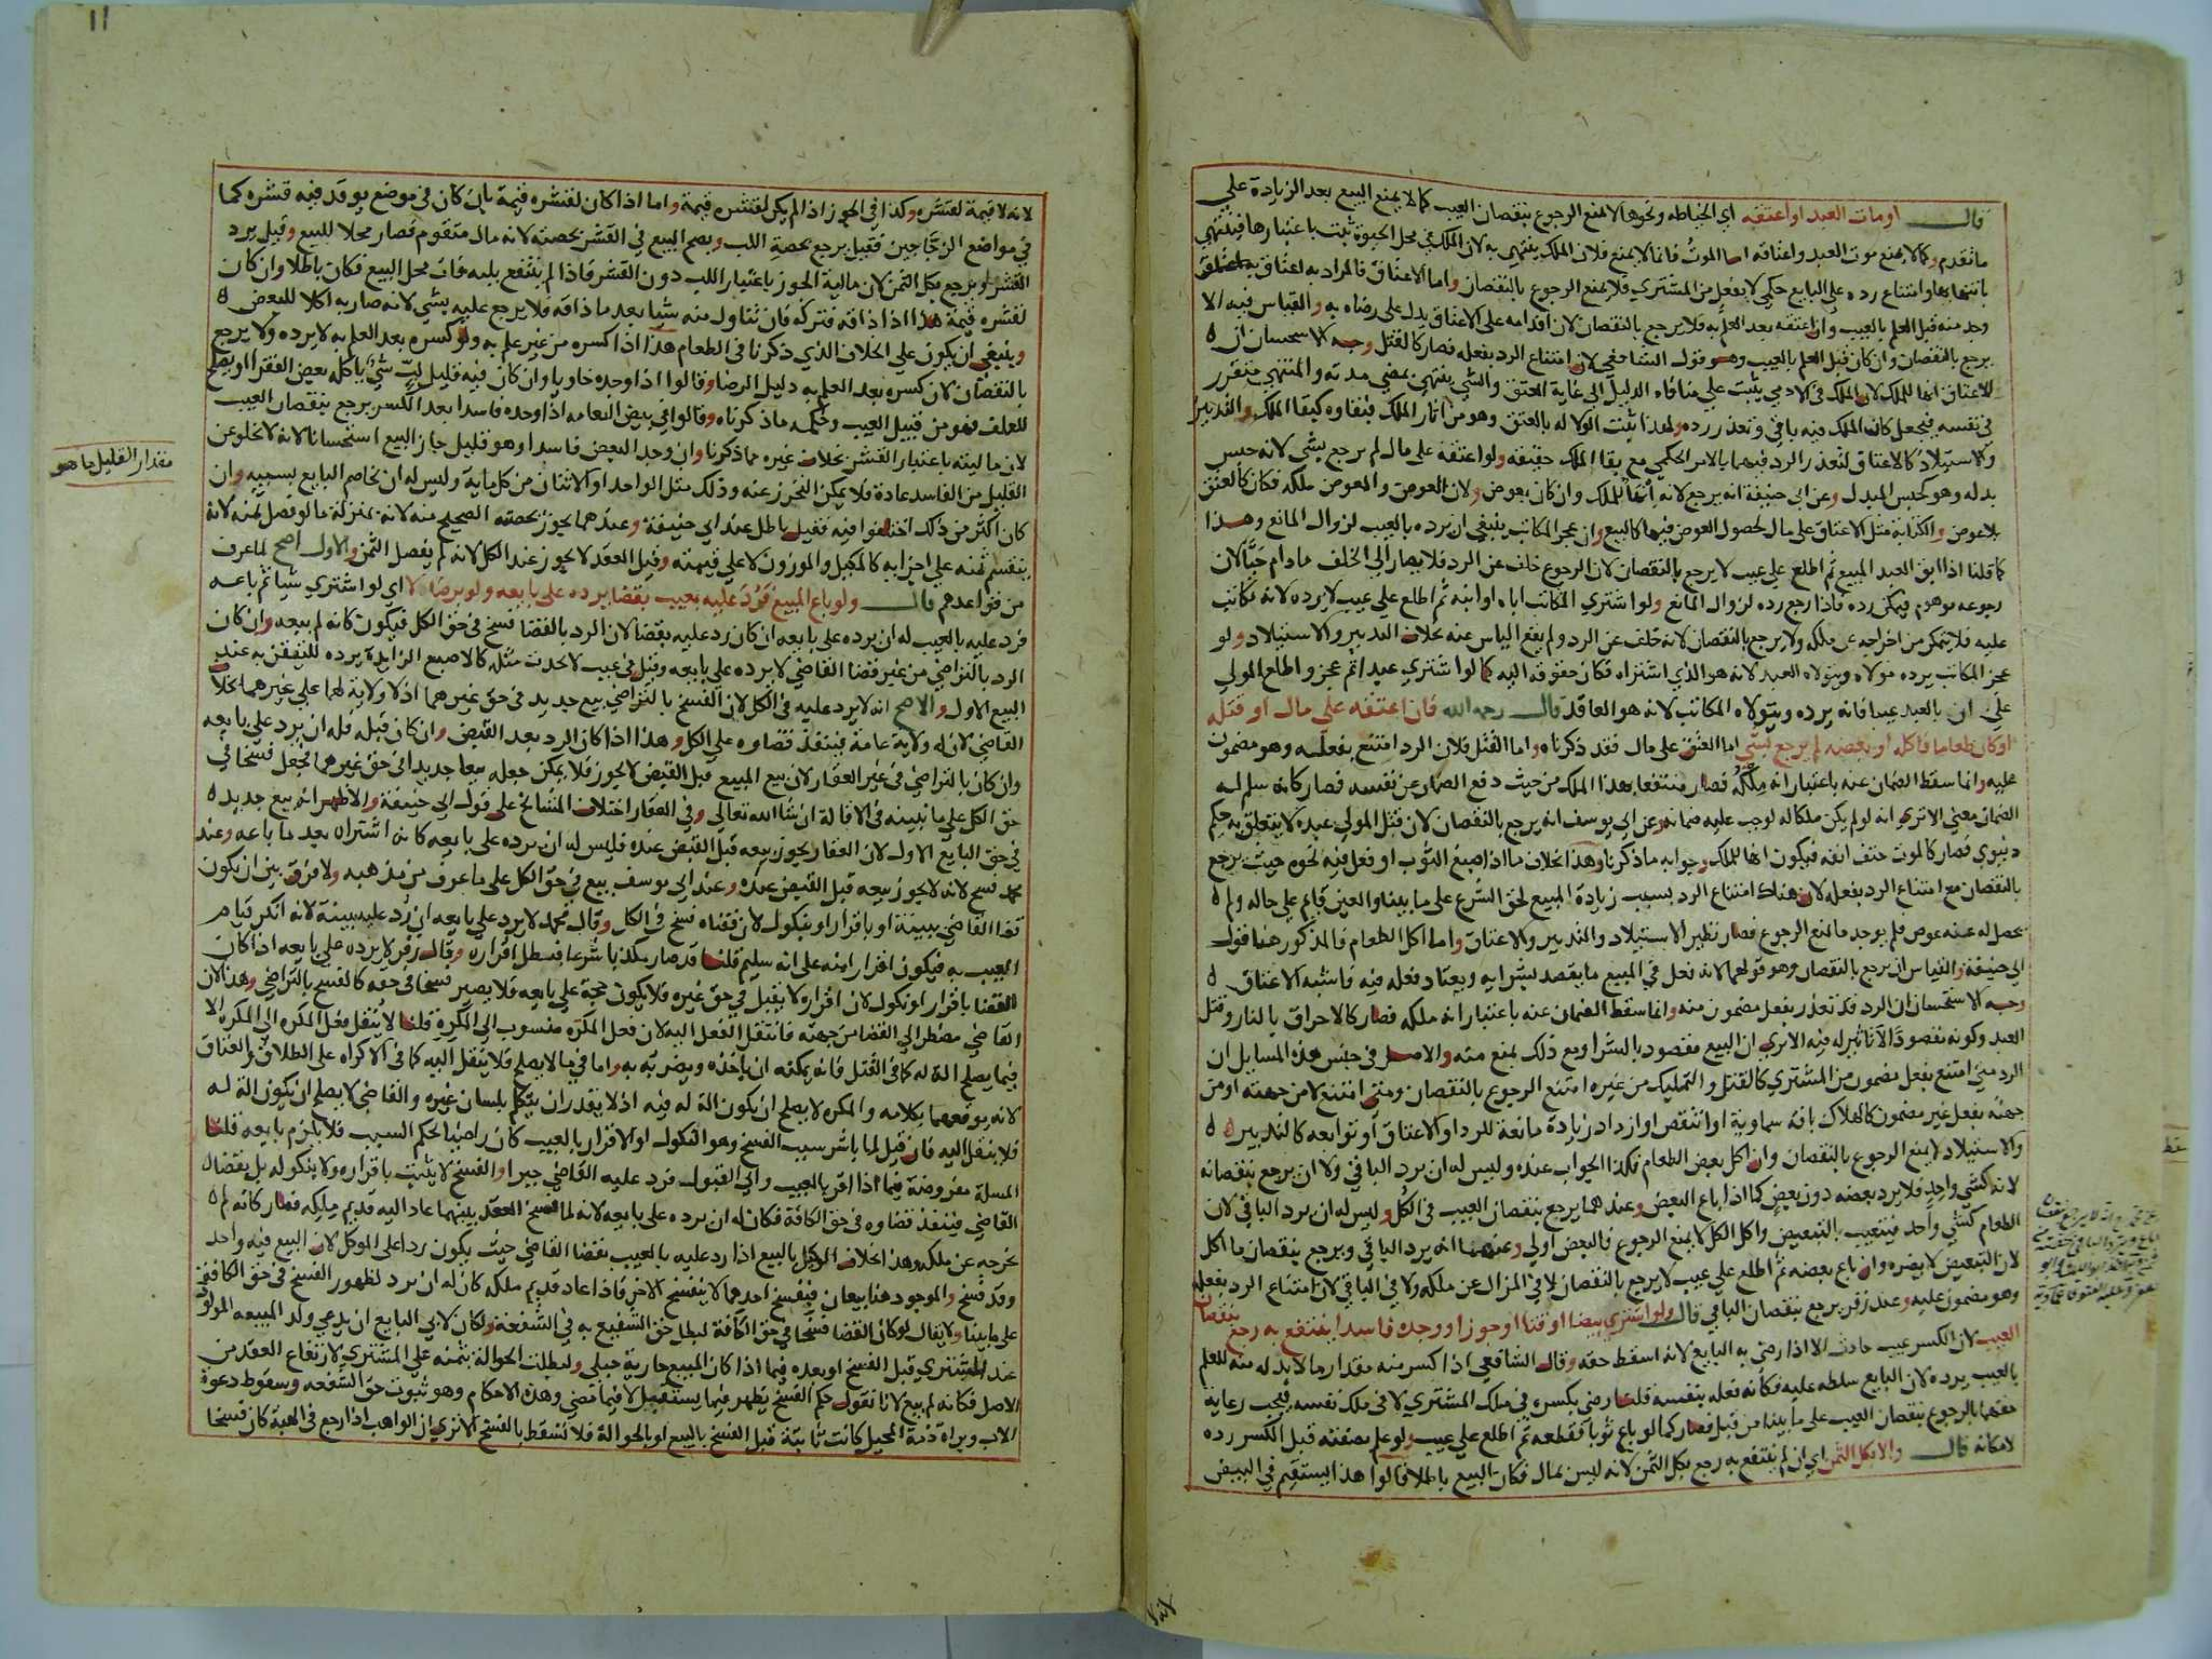 قال او مات العبد او اعتقه اي الخياطه ونحوها لا تمنع الرجوع بنقصان العيب كما لا يمنع البيع بعد الزيادة علي
ما تقدم وكما لا يمنع موت العبد واعتاقه اما الموت فانما لا يمنع فلان الملك ينتهي به لان الملك في محل الحيوة ثبت باعتبارها فينتهي
بانتهايها وامتناع رده علي البايع حكمي لا بفعل من المشتري فلا يمنع الرجوع بالنقصان واما الاعتاق فالمراد به اعتاق
وجد منه قبل العلم بالعيب وان اعتقه بعد العلم به فلا يرجع بالنقصان لان اقدامه على الاعتاق يدل على رضاه به والقياس فيه الا
يرجع بالنقصان وان كان قبل العلم بالعيب وهو قول الشافعي لان امتناع الرد بفعله فصار كالقتل وجه الاستحسان ان
الاعتاق انها للملك لان الملك في الادمي يثبت علي منافاه الدليل الى غاية العتق والشي ينتهي بمضي مدته والمنتهي متقرر
في نفسه فيجعل كان الملك فيه باقي وتعذر رده ولهذا يثبت الولا له بالعتق وهو من اثار الملك فبقاوه كبقا الملك والتدبير
والاستيلاد كالاعتاق لتعذر الرد فيهما بالامر الحكمي مع بقا الملك حقيقه ولو اعتقه على مال لم يرجع بشي لانه حبس
بدله وهو كحبس المبدل وعن ابي حنيفة انه يرجع لانه انها للملك وان كان بعوض ولان العوض والمعوض ملكه فكان كالعتق
بلا عوض والكتابة مثل الاعتاق على مال لحصول العوض فيهما كالبيع وان عجز المكاتب ينبغي ان يرده بالعيب لزوال المانع وهذا
كما قلنا اذا ابق العبد المبيع ثم اطلع علي عيب لا يرجع بالنقصان لان الرجوع خلف عن الرد فلا يصار الي الخلف ما دام حيا لان
رجوعه موهوم فيمكن رده فاذا رجع رده لزوال المانع ولو اشتري المكاتب اباه او ابنه ثم اطلع علي عيب لا يرده لانه تكاتب
عليه فلا يتمكن من اخراجه عن ملكه ولا يرجع بالنقصان لانه خلف عن الرد ولم يقع الياس عنه بخلاف التدبير والاستيلاد ولو
عجز المكاتب يرده مولاه ويتولاه العبد لانه هو الذي اشتراه فكان حقوقه اليه كما لو اشتري عبدا ثم عجز واطلع المولي
علي ان بالعبد عيبا فانه يرده ويتولاه المكاتب لانه هو العاقد قال رحمه الله فان اعتقه على مال او قتله
او كان طعاما فاكله او بعضه لم يرجع بشي اما العتق على مال فقد ذكرناه واما القتل فلان الرد امتنع بفعله وهو مضمون
عليه وانما سقط الضمان عنه باعتبار انه ملكه فصار منتفعا بهذا الملك من حيث دفع الضمان عن نفسه فصار كانه سلم له
الضمان معني الا تري انه لو لم يكن ملكا له لوجب عليه ضمانه وعن ابي يوسف انه يرجع بالنقصان لان قتل المولي عبده لا يتعلق به حكم
دنيوي فصار كالموت حتف انفه فيكون انها للملك وجوابه ما ذكرناه وهذا بخلاف ما اذا صبغ الثوب او فعل فيه نحوه حيث يرجع
بالنقصان مع امتناع الرد بفعله لان هناك امتناع الرد بسبب زيادة المبيع لحق الشرع على ما بينا والعين قايم علي حاله ولم
يحصل له عنه عوض فلم يوجد مانع الرجوع فصار نظير الاستيلاد والتدبير والاعتاق واما اكل الطعام فالمذكور هنا قول
ابي حنيفة والقياس ان يرجع بالنقصان وهو قولهما لانه فعل في المبيع ما يقصد بشرايه ويعتاد فعله فيه فاشبه الاعتاق
وجه الاستحسان ان الرد قد تعذر بفعل مضمون منه وانما سقط الضمان عنه باعتبار انه ملكه فصار كالاحراق بالنار وقتل
العبد وكونه مقصودا لا تاثير له فيه الا تري ان البيع مقصود بالشرا ومع ذلك يمنع منه والاصل في جنس هذه المسايل ان
الرد متي امتنع بفعل مضمون من المشتري كالقتل والتمليك من غيره امتنع الرجوع بالنقصان ومتي امتنع لا من جهته او من
جهته بفعل غير مضمون كالهلاك بافة سماوية او انتقص او ازداد زيادة مانعة للرد او الاعتاق او توابعه كالتدبير
والاستيلاد لا يمنع الرجوع بالنقصان وان اكل بعض الطعام فكذا الجواب عنده وليس له ان يرد الباقي ولا ان يرجع بنقصانه
لانه كشي واحد فلا يرد بعضه دون بعض كما اذا باع البعض وعندهما يرجع بنقصان العيب في الكل وليس له ان يرد الباقي لان
الطعام كشي واحد فيتعيب بالتبعيض واكل الكل لا يمنع الرجوع فالبعض اولي وعنهما انه يرد الباقي ويرجع بنقصان ما اكل
لان التبعيض لا يضره وان باع بعضه ثم اطلع علي عيب لا يرجع بالنقصان لا في المزال عن ملكه ولا في الباقي لان امتناع الرد بفعله
وهو مضمون عليه وعند زفر يرجع بنقصان الباقي قال ولو اشتري بيضا او قثا او جوزا ووجده فاسدا ينتفع به رجع بنقصان
العيب لان الكسر عيب حادث الا اذا رضي به البايع لانه اسقط حقه وقال الشافعي اذا كسر منه مقدار ما لا بد له منه للعلم
بالعيب يرده لان البايع سلطه عليه فكانه فعله بنفسه قلنا رضي بكسره في ملك المشتري لا في ملك نفسه فيجب رعاية
حقهما بالرجوع بنقصان العيب على ما بينا من قبل فصار كما لو باع ثوبا فقطعه ثم اطلع علي عيب ولو علم بصفته قبل الكسر رده
لامكانه قال والا بكل الثمن اي ان لم ينتفع به رجع بكل الثمن لانه ليس بمال فكان البيع باطلا قالوا هذا يستقيم في البيض
لانه
11
لانه لا قيمة لقشره وكذا في الجوز اذا لم يكن لقشره قيمة واما اذا كان لقشره قيمة بان كان في موضع يوقد فيه قشره كما
في مواضع الزجاجين فقيل يرجع بحصة اللب ويصح البيع في القشر بحصته لانه مال متقوم فصار محلا للبيع وقيل يرد
القشر ويرجع بكل الثمن لان مالية الجوز باعتبار اللب دون القشر فاذا لم ينتفع بلبه فات محل البيع فكان باطلا وان كان
لقشره قيمة هذا اذا ذاقه فتركه فان تناول منه شيا بعد ما ذاقه فلا يرجع عليه بشي لانه صار به اكلا للبعض
وينبغي ان يكون علي الخلاف الذي ذكرنا في الطعام هذا اذا كسره من غير علم به ولو كسره بعد العلم به لا يرده ولا يرجع
بالنقصان لان كسره بعد العلم به دليل الرضا وقالوا اذا وجده خاويا وان كان فيه قليل لب شي ياكله بعض الفقرا او يصلح
للعلف فهو من قبيل العيب وحكمه ما ذكرناه وقالوا في بيض النعامه اذا وجده فاسدا بعد الكسر يرجع بنقصان العيب
لان ماليته باعتبار القشر بخلاف غيره مما ذكرنا وان وجد البعض فاسدا وهو قليل جاز البيع استحسانا لانه لا يخلو عن
القليل من الفاسد عادة فلا يمكن التحرز عنه وذلك مثل الواحد او الاثنان من كل ماية وليس له ان يخاصم البايع بسببه وان
مقدار القليل ما هو
كان اكثر من ذلك اختلفوا فيه فقيل باطل عند ابي حنيفة وعندهما يجوز بحصته الصحيح منه لانه بمنزلة ما لو فصل ثمنه لانه
ينقسم ثمنه علي اجزايه كالمكيل والموزون لا علي قيمته وقيل العقد لا يجوز عند الكل لانه لم يفصل الثمن والاول اصح لما عرف
من قواعدهم قال ولو باع المبيع فرد عليه بعيب بقضا يرده على بايعه ولو برضاه لا اي لو اشتري شيا ثم باعه
فرد عليه بالعيب له ان يرده على بايعه ان كان رد عليه بقضا لان الرد بالقضا فسخ في حق الكل فيكون كانه لم يبعه وان كان
الرد بالتراضي من غير قضا القاضي لا يرده على بايعه وقيل في عيب لا يحدث مثله كالاصبع الزايدة يرده للتيقن به عند
البيع الاول والاصح انه لا يرد عليه في الكل لان الفسخ بالتراضي بيع جديد في حق غيرهما اذ لا ولاية لهما علي غيرهما بخلاف
القاضي لان له ولاية عامة فينفذ قضاوه علي الكل وهذا اذا كان الرد بعد القبض وان كان قبله فله ان يرد علي بايعه
وان كان بالتراضي في غير العقار لان بيع المبيع قبل القبض لا يجوز فلا يمكن جعله بيعا جديدا في حق غيرهما فجعل فسخا في
حق الكل علي ما نبينه في الاقالة ان شا الله تعالي وفي العقار اختلاف المشايخ على قول ابي حنيفة والاظهر انه بيع جديد
في حق البايع الاول لان العقار يجوز بيعه قبل القبض عنده فليس له ان يرده على بايعه كانه اشتراه بعد ما باعه وعند
محمد فسخ لانه لا يجوز بيعه قبل القبض عنده وعند ابي يوسف بيع في حق الكل على ما عرف من مذهبه ولا فرق بين ان يكون
قضا القاضي ببينة او باقرار او بنكول لان قضاه فسخ في الكل وقال محمد لا يرد علي بايعه ان رد عليه ببينة لانه انكر قيام
العيب به فيكون اقرارا منه على انه سليم قلنا قد صار مكذبا شرعا فبطل اقراره وقال زفر لا يرده علي بايعه اذا كان
القضا باقرار او نكول لان اقراره لا يقبل في حق غيره فلا يكون حجة علي بايعه فلا يصير فسخا في حقه كالفسخ بالتراضي وهذا لان
القاضي مضطر الي القضا من جهته فانتقل الفعل اليه لان فعل المكره منسوب الي المكره قلنا لا ينقل فعل المكره الي المكره الا
فيما يصلح الة له كما في القتل فانه يمكنه ان ياخذه ويضربه به واما في ما لا يصلح فلا ينقل اليه كما في الاكراه على الطلاق والعتاق
لانه يوقعهما بكلامه والمكره لا يصلح ان يكون الة له فيه اذ لا يقدر ان يتكلم بلسان غيره والقاضي لا يصلح ان يكون الة له
فلا ينتقل اليه فان قيل لما باشر سبب الفسخ وهو النكول او الاقرار بالعيب كان راضيا لحكم السبب فلا يلزم بايعه قلنا
المسلة مفروضة فيما اذا اقر بالعيب وابي القبول فرد عليه القاضي جبرا والفسخ لا يثبت باقراره ولا بنكوله بل بقضا
القاضي فينفذ قضاوه في حق الكافة فكان له ان يرده على بايعه لانه لما انفسخ العقد بينهما عاد اليه قديم ملكه فصار كانه لم
يخرجه عن ملكه وهذا بخلاف الوكيل بالبيع اذا رد عليه بالعيب بقضا القاضي حيث يكون ردا على الموكل لان البيع فيه واحد
وقد فسخ والموجود هنا بيعان فبفسخ احدهما لا ينفسخ الاخر فاذا عاد قديم ملكه كان له ان يرد لظهور الفسخ في حق الكافة
على ما بينا ولا يقال لو كان القضا فسخا في حق الكافة لبطل حق الشفيع به في الشفعة ولكان لابي البايع ان يدعي ولد المبيعه المولود
عند المشتري قبل الفسخ او بعده فيما اذا كان المبيع جارية حبلى ولبطلت الحوالة بثمنه علي المشتري لارتفاع العقد من
الاصل فكانه لم يبع لانا نقول حكم الفسخ يظهر فيما يستقبل لا فيما مضي وهذه الاحكام وهو ثبوت حق الشفعه وسقوط دعوة
الاب وبراة ذمة المحيل كانت ثابتة قبل الفسخ بالبيع او بالحوالة فلا تسقط بالفسخ الا تري ان الواهب اذا رجع في الهبة كان فسخا